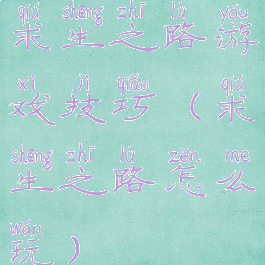 qiú shēng zhī lù yóu
求生之路游
xì jì qiǎo qiú
戏技巧（求
shēng zhī lù zěn me
生之路怎么
wán
玩）